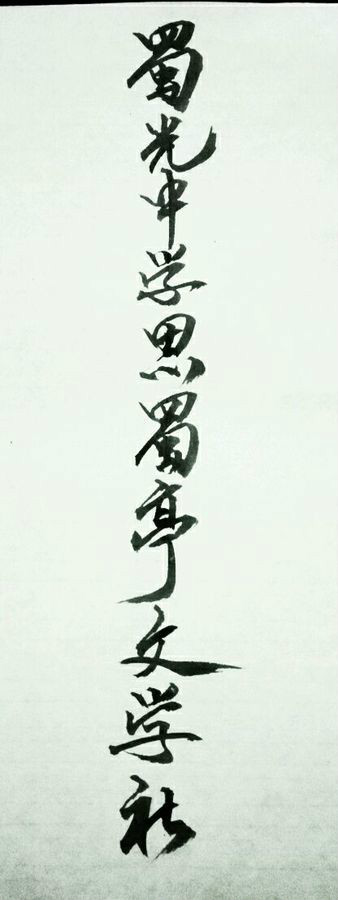 蜀光中学思蜀亭文学社